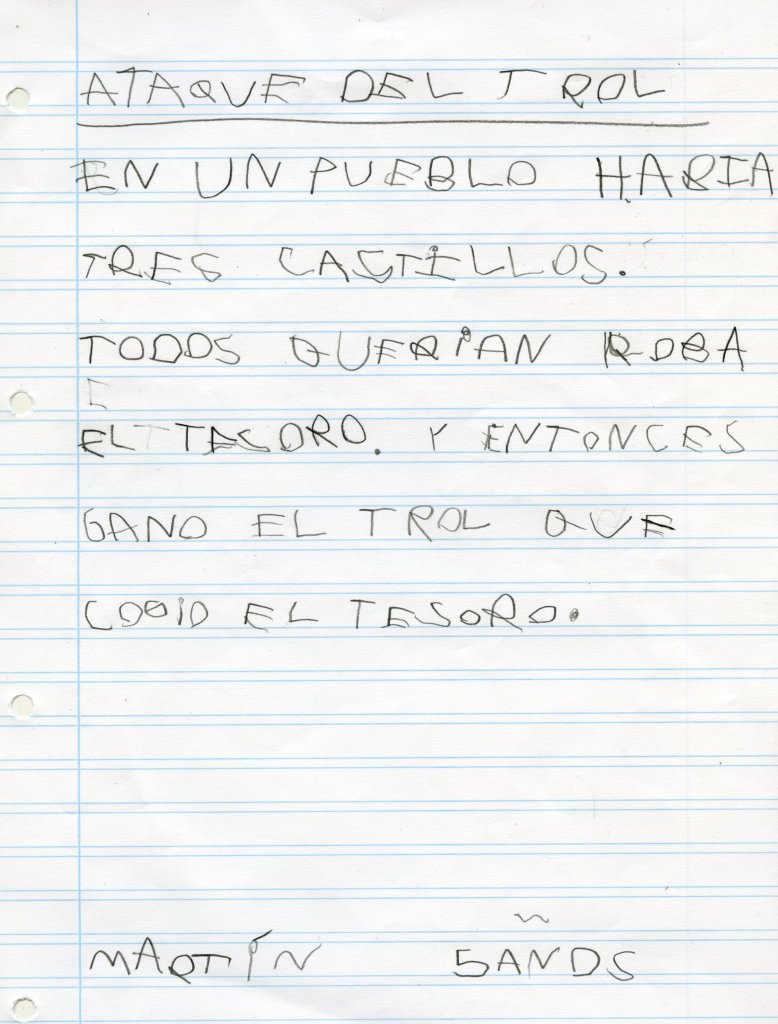 ATAQUE DEL TROL
EN UN PUEBLO HABIA
TRES CASTILLOS.
TODOS QUERIAN ROBA
EL TESORO. Y ENTONCES
GANO EL TROL QUE
COGIO EL TESORO.
MARTÍN 5 AÑOS